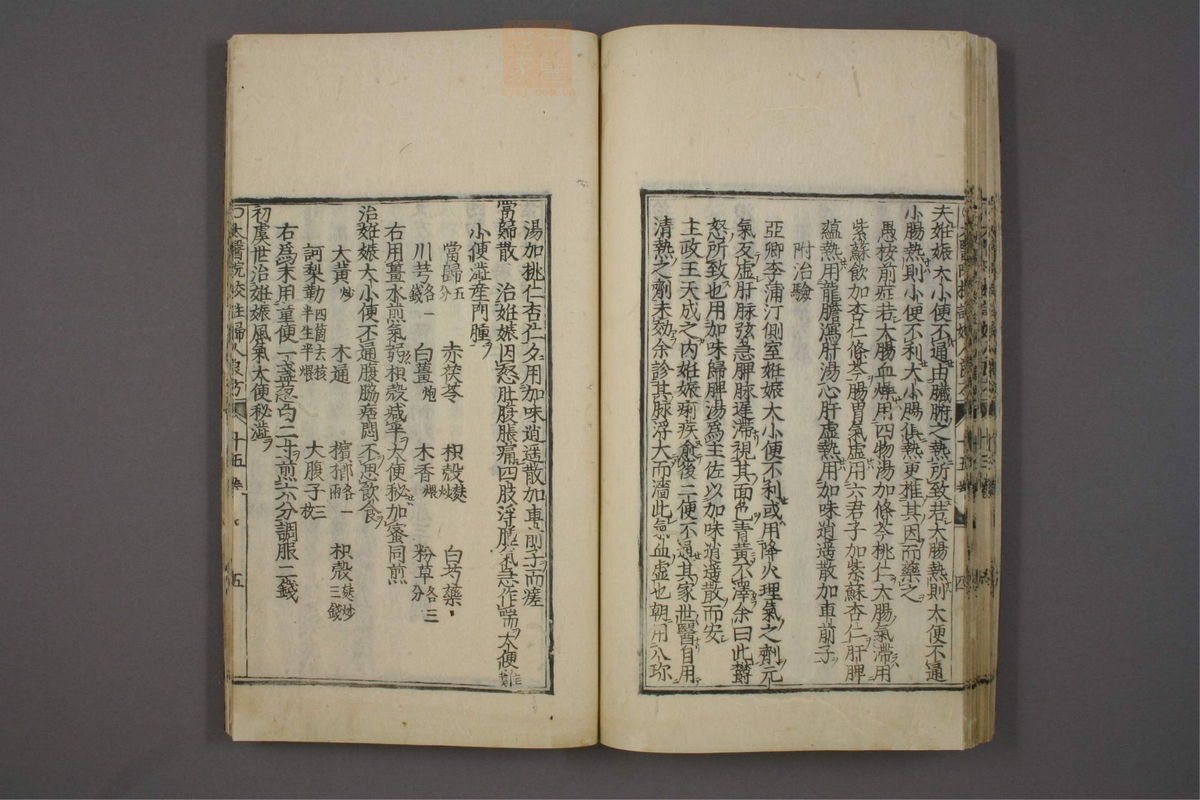 夫妊娠大小便不通由臟腑之熱所致若大腸熱則大便不通
小腸熱則小便不利大小腸俱熱更推其因而藥之
愚按前症若大腸血燥用四物湯加條芩桃仁大腸氣滯用
紫蘇飲加杏仁條芩腸胃氣虛用六君子加紫蘇杏仁肝脾
蘊熱用龍膽瀉肝湯心肝虛熱用加味逍遥散加車前子
附治驗
亞卿李蒲汀側室妊娠大小便不利或用降火理氣之劑元
氣反虛肝脉弦急脾脉遲滯視其面色青黃不澤余曰此欝
怒所致也用加味歸脾湯爲主佐以加味逍遥散而安
主政王天成之内妊娠痢疾愈後二便不通其家世醫自用
清熱之劑未効余診其脉浮大而濇此氣血虛也朝用八珎
湯加桃仁杏仁夕用加味逍遥散加車前子而瘥
當歸散 治妊娠因怒肚腹脹痛四肢浮腫氣急作喘大便難
小便澁産門腫
當歸五分 赤茯苓 枳殼麸炒 白芍藥
川芎各一錢 白薑炮 木香煨 粉草各三分
右用薑水煎氣弱枳殼减半大便秘加蜜同煎
治妊娠大小便不通腹脇痞悶不思飲食
大黃炒 木通 檳榔各一兩 枳殼麸炒三錢
訶梨勒四箇去核半生半煨 大腹子三枚
右爲末用童便一盞葱白二寸煎六分調服二錢
初虞世治妊娠風氣大便秘澁
十五卷 五
四